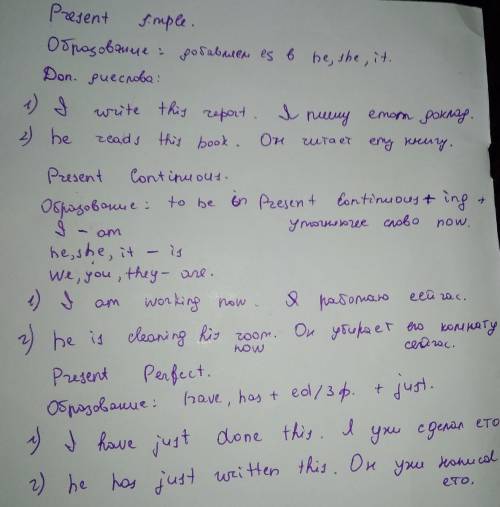 Present simple.
Образование: добавляем es в he, she, it.
Доп. глаголы:
1) I write this report. I пишу етот доклад.
2) he reads this book. Он читает ету книгу.
Present Continuous.
Образование: to be в Present Continuous + ing +
I - am уточняющее слово now.
he, she, it - is
We, you, they - are.
1) I am working now. Я работаю сейчас.
2) he is cleaning his room. Он убирает его комнату
now сейчас.
Present Perfect.
Образование: have, has + ed/3ф. + just.
1) I have just done this. Я уже сделал ето
2) he has just written this. Он уже написал
ето.